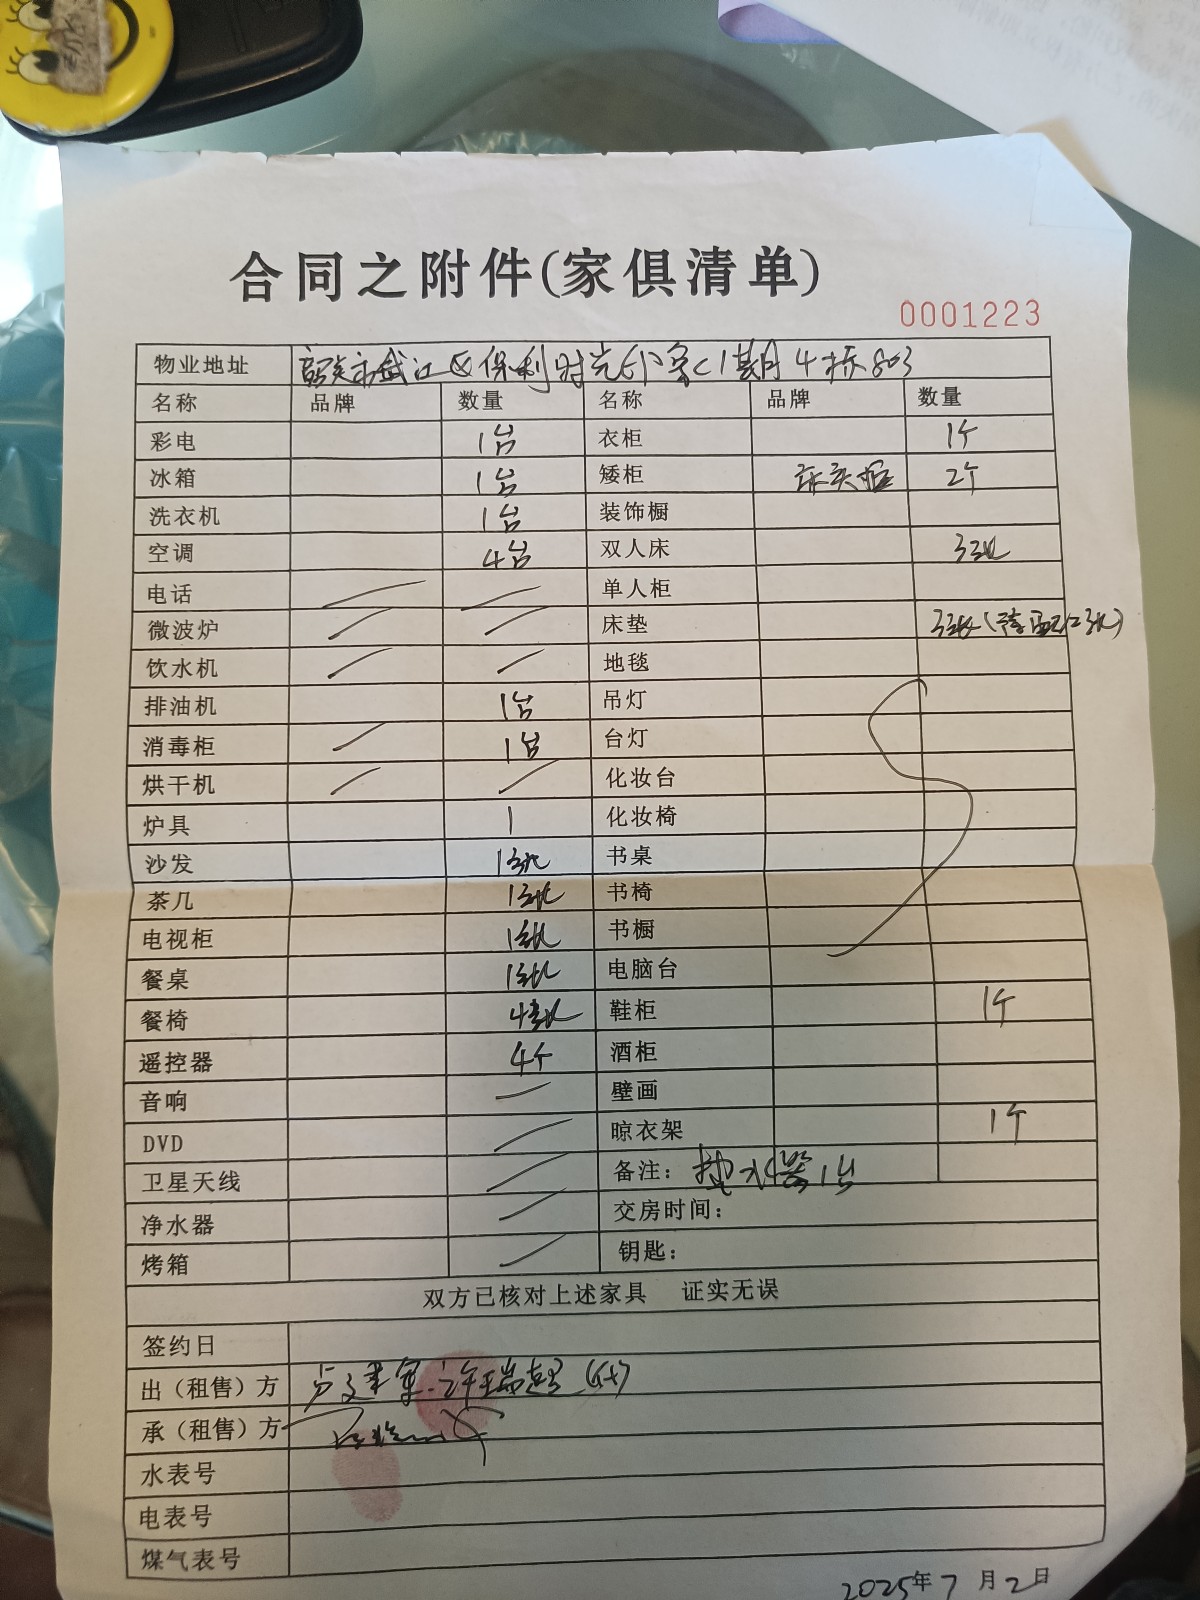 合同之附件(家俱清单)
0001223
物业地址 韶关市武江区保利时光小家<1期>4栋803
名称 品牌 数量 名称 品牌 数量
彩电 1台 衣柜 1个
冰箱 1台 矮柜 床头柜 2个
洗衣机 1台 装饰橱
空调 4台 双人床 3张
电话 单人柜
微波炉 床垫 3张
饮水机 地毯
排油机 1台 吊灯
消毒柜 1台 台灯
烘干机 化妆台
炉具 1 化妆椅
沙发 1张 书桌
茶几 1张 书椅
电视柜 1张 书橱
餐桌 1张 电脑台
餐椅 4张 鞋柜 1个
遥控器 4个 酒柜
音响 壁画
DVD 晾衣架 1个
卫星天线 备注: 热水器1台
净水器 交房时间:
烤箱 钥匙:
双方已核对上述家具 证实无误
签约日
出（租售）方
承（租售）方
水表号
电表号
煤气表号
2025年7月2日